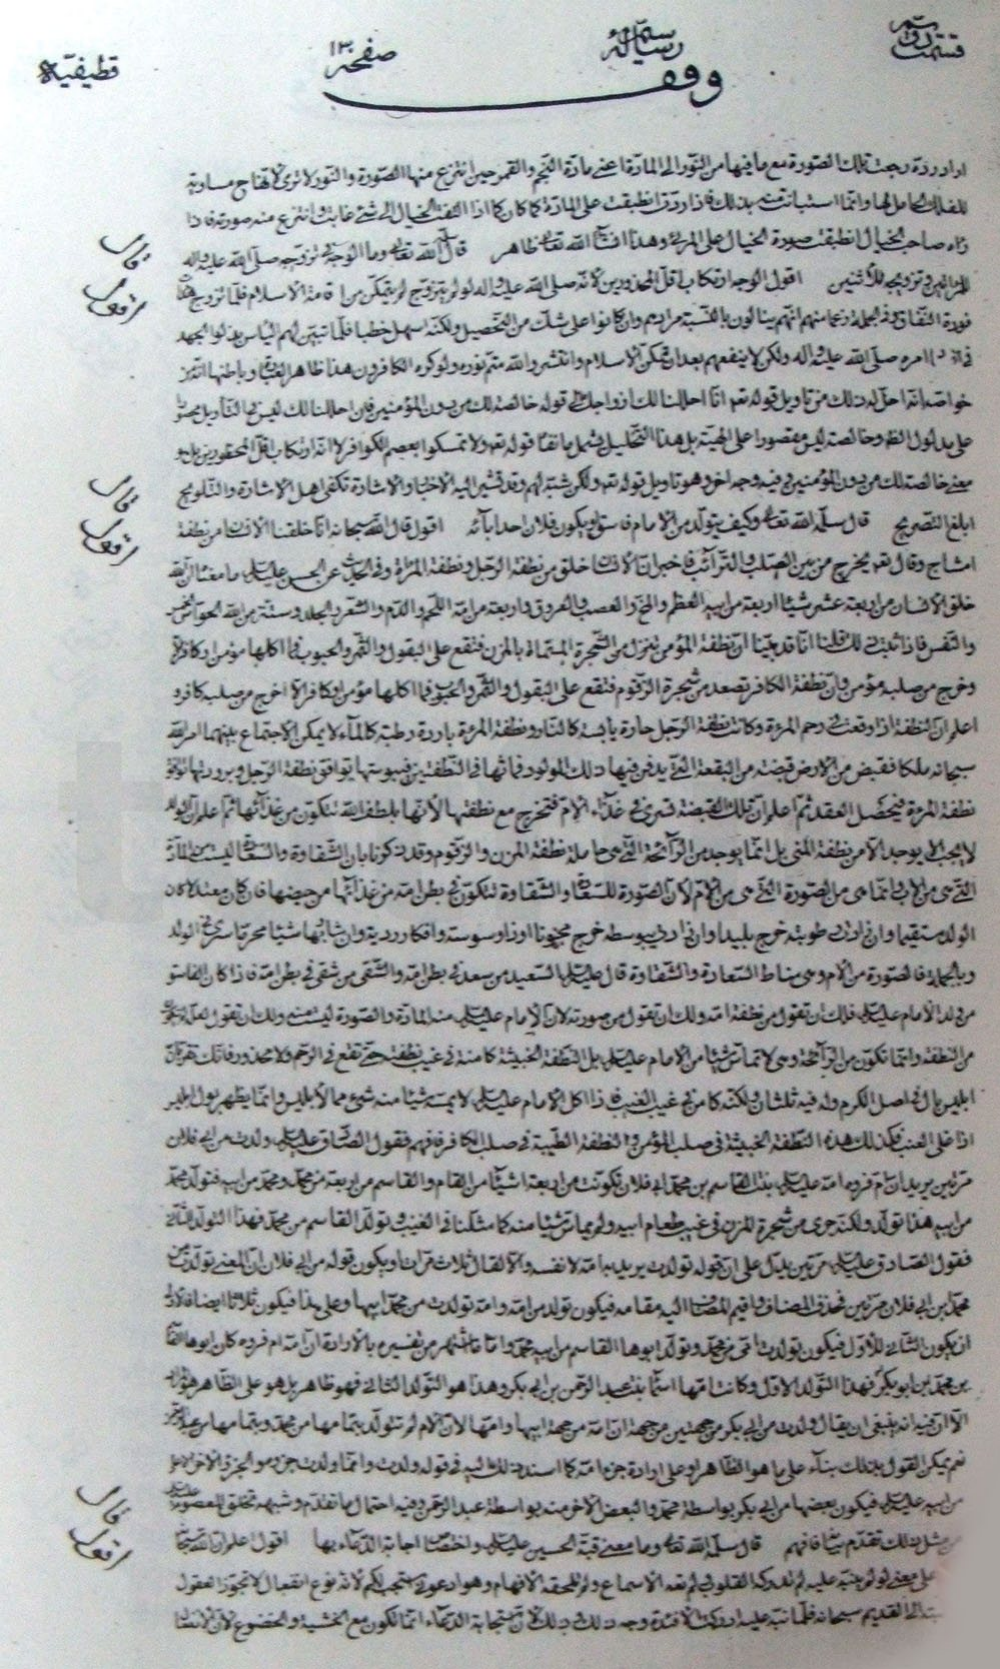 قسمت دوّم
رسالهٔ
صفحه ١٣٠
قطيفيّه
وقف
اراد ردّه رجعت تلك الصّورة مع ما فيها من النّور الى المادّة اعني مادّة النّجم والقمر حين انتزع منها الصّورة والنّور لا ترى
للفلك الحامل لها وانّما استبانت منه بذلك فاذا ردّ انطبقت على المادّة كما كان كما اذا التفت الخيال الى شيء غائب وانتزع منه صورته فاذا
راه صاحب الخيال انطبقت صورة الخيال على المرئي وهذا انشاء الله تعالى ظاهر قال سلّمه الله تعالى وما الوجه في تزوّجه صلّى الله عليه واله
قال
للمرأتين وتزويجه للاثنين اقول الوجه ارتكاب اقلّ المحذورين لانّه صلّى الله عليه واله لو لم يتزوّج لم يتمكّن من اقامة الاسلام فلمّا تزوّج
اقول
قوة النّفاق وفي الجملة زعما منهم انّهم ينالون بالنّسبة مرادهم وان كانوا على شكّ من التّحصيل ولكنّه اسهل خطبا فلمّا تبيّن لهم الياس بذلوا الجهد
امره صلّى الله عليه واله ولكن لا ينفعهم بعد ان تمكّن الاسلام وانتشر والله متمّ نوره ولو كره الكافرون هذا ظاهر
خواصّه انّه احلّ له ذلك من تاويل قوله تعالى انّا احللنا لك ازواجك الى قوله خالصة لك من دون المؤمنين فان احللنا لك
على مدلول اللفظ وخالصة ليس مقصورا على الهبة بل هذا التّحليل يشمل ما نقا قوله تعالى ولا تمسكوا بعصم الكوافر لانّه ارتكاب اقلّ
معنى خالصة لك من دون المؤمنين وفيه وجه اخر وهو تاويل قوله تعالى ولكن شبّه لهم وقد تشير اليه الاخبار والاشارة تكفي اهل الاشارة والتّلويح
قال
ابلغ التّصريح قال سلّمه الله تعالى وكيف يتولّد من الامام فاسق او يكون فلان احد ابائه اقول قال الله سبحانه انّا خلقنا الانسان من نطفة
اقول
امشاج وقال تعالى يخرج من بين الصّلب والتّرائب فاخبر انّ الانسان خلق من نطفة الرّجل ونطفة المرأة وفي الحديث عن الحسن عليه السلام ما معناه انّ الله
خلق الانسان من اربعة عشر شيئا اربعة من ابيه العظم والمخّ والعصب والعروق واربعة من امّه اللّحم والدّم والشّعر والجلد وستّة من الله الحواسّ الخمس
والنّفس فاذا ثبت ذلك قلنا انّا قد بيّنا انّ نطفة المؤمن تنزل من الشّجرة المسمّاة بالمزن فتقع على البقول والثّمر والحبوب فما اكلها مؤمن او كافر الا
وخرج من صلبه مؤمن وانّ نطفة الكافر تصعد من شجرة الزّقوم فتقع على البقول والثّمر والحبوب فما اكلها مؤمن او كافر الا اخرج من صلبه كافر و
اعلم انّ النّطفة اذا وقعت في رحم المرءة وكانت نطفة الرّجل حارة يابسة كالنّار ونطفة المرءة باردة رطبة كالماء لا يمكن الاجتماع بينهما امر الله
سبحانه ملكا فقبض من الارض قبضة من البقعة الّتي يدفن فيها ذلك المولود فماثها في النّطفتين فبيبوستها توافق نطفة الرّجل وبرودتها توافق
نطفة المرءة فيحصل العقد ثم اعلم انّ تلك القبضة تسري في غذاء الامّ فتخرج مع نطفتها لانّها بلطف الله تتكون من غذائها ثم اعلم انّ الولد
لا يجب الا يوجد الا من نطفة المني بل انّما يوجد من الرّائحة الّتي هي حاملة نطفة المزن والزّقوم وقد ذكرنا بان الشّقاوة والسّعادة ليست من المادّة
الّتي هي من الاب وانّما هي من الصّورة الّتي هي من الامّ لانّ الصّورة للسّعادة والشّقاوة تتكون في بطن امّه من غذائها من حيضها فان كان معتدلا كان
الولد مستقيما وان زادت رطوبته خرج بليدا وان زادت يبوسته خرج مجنونا او ذا وسوسة وافكار رديّة وان شابها شيئا محرّما سرى في الولد
وبالجملة فالصّورة من الامّ وهي مناط السّعادة والشّقاوة قال عليه السلام السّعيد من سعد في بطن امّه والشّقي من شقي في بطن امّه فاذا كان الفاسق
من ولد الامام عليه السلام فلك ان تقول من نطفة امّه ولك ان تقول من صورته لانّ الامام عليه السلام منه المادّة والصّورة ليست منه ولك ان تقول
من النّطفة وانّما تكون من الرّائحة وهي لا تماسّ شيئا من الامام عليه السلام بل النّطفة الخبيثة كامنة في غيب نطفته حتّى تقع في الرّحم ولا محذور
ابليس بال في اصل الكرم وله فيه ثلثان ولكنّه كامن في غيب العنب فاذا اكل الامام عليه السلام لا يمسّه شيئا منه شيء مما لابليس وانّما يظهر بول ابليس
اذا غلى العنب فكذلك هذه النّطفة الخبيثة في صلب المؤمن والنّطفة الطّيّبة في صلب الكافر فافهم فقول الصّادق عليه السلام ولدت من ابي فلان
مرّتين يريد ان امّ فروه امّه عليه السلام بنت القاسم بن محمّد ابي فلان تكونت من اربعة اشياء من القاسم والقاسم من اربعة من محمّد ومحمّد من ابيه فتولّد محمّد
من ابيه هذا تولّد ولكنّه جرى من شجرة المزن في غيب طعام ابيه ولم يماسّ شيئا منه كما مثّلنا في العنب وتولّد القاسم من محمّد فهذا التّولّد الثّاني
فقول الصّادق عليه السلام مرّتين يدلّ على انّ قوله تولّدت يريد به امّه لا نفسه والا لقال ثلاث مرّات ويكون قوله من ابي فلان انّ المعنى تولّدت من
محمّد بن ابي فلان مرّتين فحذف المضاف واقيم المضاف اليه مقامه فيكون تولّد من امّه وامّه تولّدت من محمّد ابيها وعلى هذا فيكون ثلاثا ايضا
ان يكون الثّاني للاوّل فيكون تولّدت امّي من محمّد وتولّد ابوها القاسم من ابيه محمّد وامّا ما اشتهر من تفسيره بالارادة انّ امّه امّ فروه كان ابوها القاسم
بن محمّد بن ابو بكر فهذا التّولّد الاوّل وكانت امّها اسماء بنت عبد الرّحمن بن ابي بكر وهذا هو التّولّد الثّاني فهو ظاهر بل هو على الظّاهر هو
الا انّ فيه انّه ينبغي ان يقال ولدت من ابي بكر من جهتين من جهة انّ امّه من جهة ابيها وامّها لانّ الامّ لم تتولّد بتمامها من محمّد وبتمامها من عبد الرحمن
نعم يمكن القول بذلك بناء على ما هو الظّاهر او على ارادة جزء امّه كما اسند ذلك اليه في قوله ولدت وانّما ولدت جزءه والجزء الاخر
من ابيه عليه السلام فيكون بعضها من ابي بكر بواسطة محمّد والبعض الاخر منه بواسطة عبد الرّحمن وفيه احتمال ما تقدّم وشبهه
قال
مثل ذلك تقدّم بيانه فافهم قال سلّمه الله تعالى وما معنى قبّة الحسين عليه السلام واختصاص اجابة الدّعاء بها اقول اعلم انّ الله سبحانه
اقول
على معنى لو لم ينبّه عليه لم تدركه القلوب ولم تعه الاسماع ولم تلحقه الافهام وهو ادعوني استجب لكم لانّه نوع انفعال لا تجوّز العقول
القديم سبحانه فلمّا نبّه عليه ادركت الافئدة وجه ذلك وذلك لانّ استجابة الدّعاء انّما تكون مع الخشية والخضوع لانّ